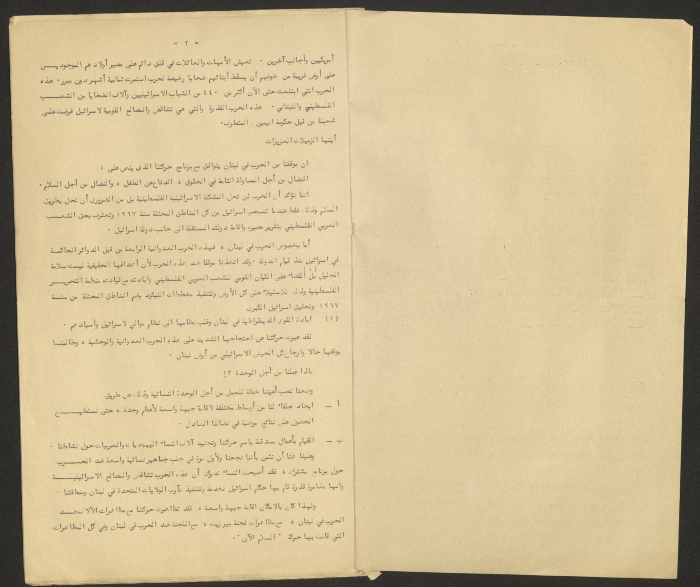 - ٢ -
أمريكيين وأجانب آخرين . تعيش الأمهات والعائلات في قلق دائم على مصير أولادهم الموجوديـــن
على أرض غريبة من خوفهم أن يسقط أبنائهم ضحايا رخيصة لحرب استمرت ثمانية أشهر دون مبرر. هذه
الحرب التي ابتلعت حتى الآن أكثر من ٤٤٠ من الشباب الاسرائيليين وآلاف الضحايا من الشعـــب
الفلسطيني واللبناني . هذه الحرب القذرة والتي هي تتناقض والمصالح القومية لاسرائيل فرضت على
شعبنا من قبل حكومة اليمين المتطرف.
أيتها الزميلات العزيزات
ان موقفنا من الحرب في لبنان يتوافق مع برنامج حركتنا الذى ينص على :
النضال من أجل المساواة التامة في الحقوق ، الدفاع عن الطفل ، والنضال من أجل السلام .
اننا نؤكد أن الحرب لن تحل المشكلة الاسرائيلية الفلسطينية بل من الضرورى أن تحل بطريق
السلام وذلك فقط عندما تنسحب اسرائيل من كل المناطق المحتلة سنة ١٩٦٧ وتعترف بحق الشعـــب
العربي الفلسطيني بتقرير مصيره واقامة دولته المستقلة الى جانب دولة اسرائيل .
أما بخصوص الحرب في لبنان ، فهذه الحرب العدوانية الرابعة من قبل الدوائر الحاكمـــة
في اسرائيل منذ قيام الدولة . وقد اتخذنا موقفا ضد هذه الحرب لأن أهدافها الحقيقية ليست سلامة
الجليل بل القضاء على الكيان القومي للشعب العربي الفلسطيني وابادته مع قيادته منظمة التحريـــر
الفلسطينية وذلك للاستيلاء على كل الأرض ولتنفيذ مخططات الليكود بضم المناطق المحتلة من سنـــة
١٩٦٧ وتحقيق اسرائيل الكبرى
(٤) ابادة القوى الديمقراطية في لبنان وقلب نظامها الى نظام موالي لاسرائيل وأسيادهم .
لقد عبرت حركتنا عن احتجاجها الشديد على هذه الحرب العدوانية والوحشية ، وطالبنا
بوقفها حالا وارجاع كل الجيش الاسرائيلي من أرض لبنان .
ماذا عملنا من أجل الوحدة ؟!
وضعنا نصب أعيننا خطة للعمل من أجل الوحدة النسائية وذلك عن طريق
أ - ايجاد حلفاء لنا من أوساط مختلفة لاقامة جبهة واسعة لأعظم وحدة ، حتى نستطيـــع
الحصول على نتائج مرضية في نضالنا العادل .
ب - القيام بأعمال مستقلة باسم حركتنا وتجنيد آلاف النساء اليهوديات والعربيات حول نشاطنا .
وهنا علينا أن نشير بأننا نجحنا ولأول مرة في جذب جماهير نسائية واسعة ضد الحـــرب
حول برنامج مشترك ، فقد أصبحت النساء تدرك أن هذه الحرب تتناقض والمصالح الاسرائيليـــة
وانها مغامرة قذرة قام بها حكام اسرائيل لخدمة ولتنفيذ مآرب الولايات المتحدة في لبنان ومنطقتنا .
ولهذا كان بالامكان اقامة جبهة واسعة ، فقد تظاهرت حركتنا مع مظاهرات الآلاف ضـــد
الحرب في لبنان ، مع مظاهرات لجنة بيرزيت ، مع اللجنة ضد الحرب في لبنان وفي كل المظاهرات
التي قامت بها حركة " السلام الآن ".